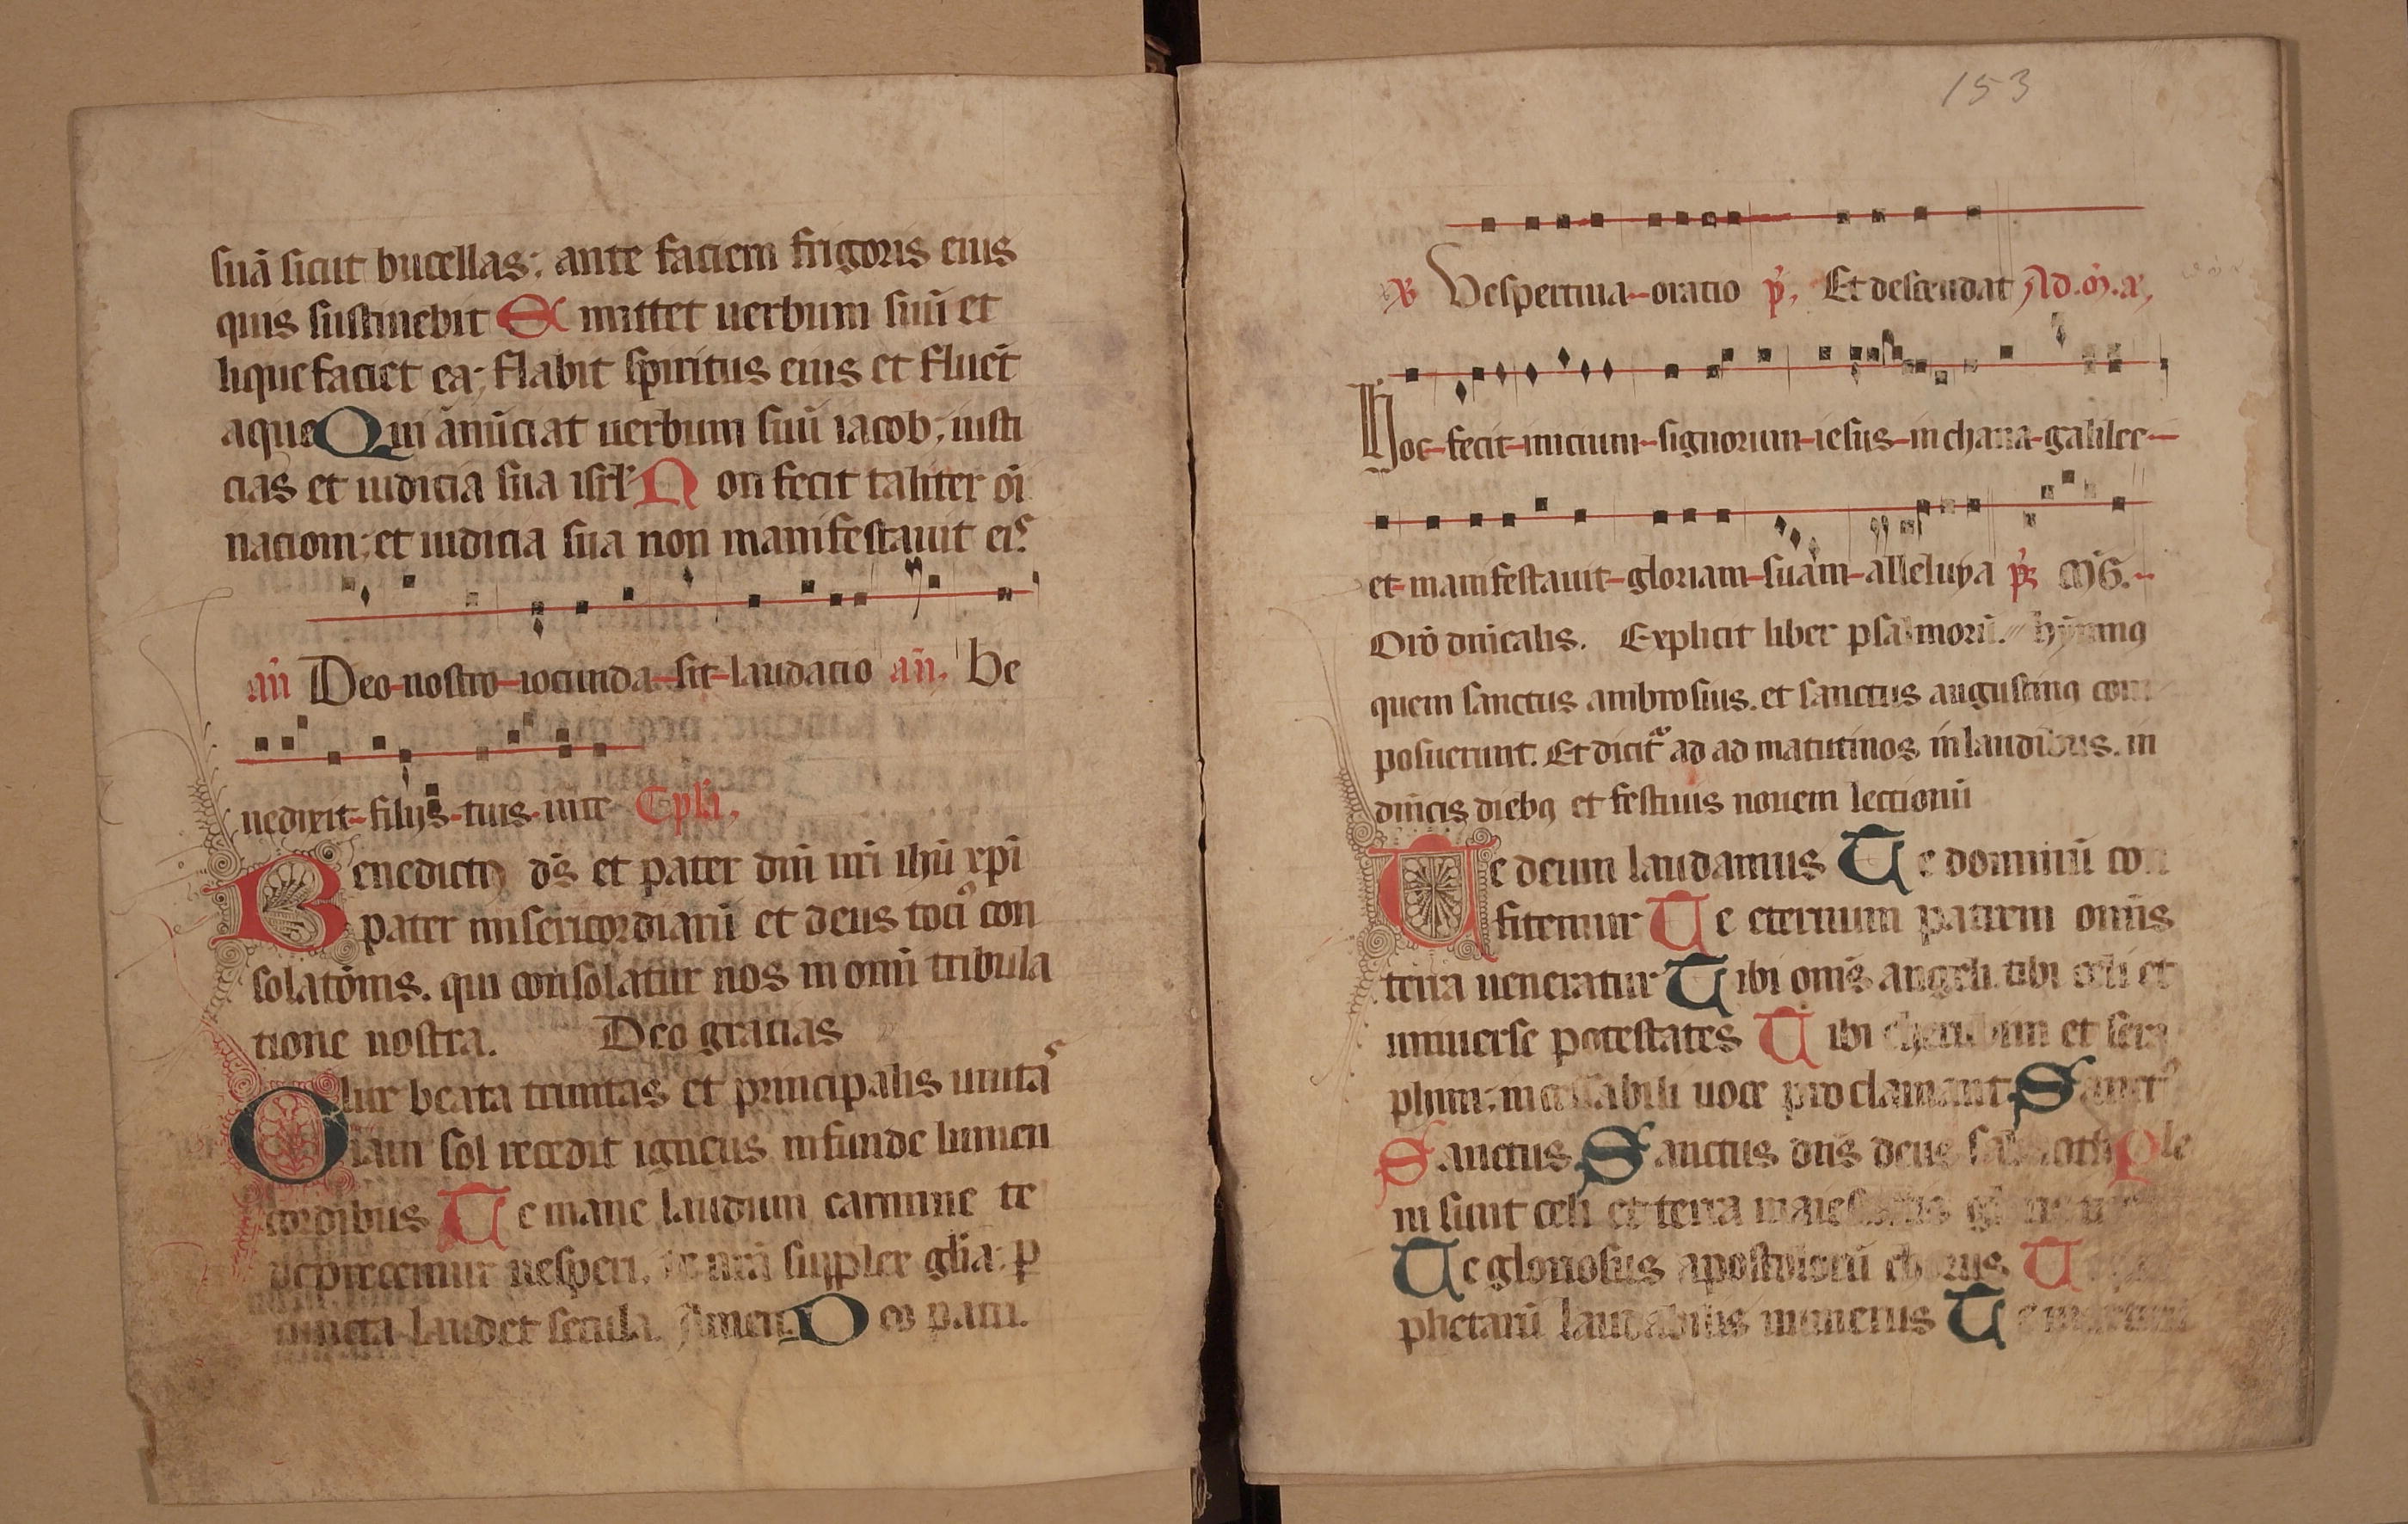 suā sicut bucellas; ante faciem frigoris eius
quis sustinebit E mittet uerbum suū et
liquefaciet ea; flabit spiritus eius et fluēt
aque Qui ānūciat uerbum suū iacob; iusti
cias et iudicia sua isrl Non fecit taliter oī
nationi; et iudicia sua non manifestauit eis
an̄ Deo nostro iocunda sit laudatio an̄. Be
nedixit filijs tuis inte Cpl̄a.
Benedictus d̄s et pater dn̄i nr̄i ihū xp̄i
pater misericordiarū et deus toci⁹ con
solatōnis. qui consolatur nos in omī tribula
tione nostra. Deo gracias
O lux beata trinitas et principalis unitas
iam sol recedit igneus infunde lumen
cordibus Te mane laudum carmine te
deprecemur uesperi. te nrā supplex glīa; p
cuncta laudet secula. Amen. Deo patri.
153
V Vespertina oratio p̄. Et descendat Ad. m̄. a,
Hoc fecit inicium signorum iesus in chana galilee
et manifestauit gloriam suam alleluya ps MG.
Orō dn̄icalis. Explicit liber psalmorū. hȳmnus
quem sanctus ambrosius. et sanctus augustinus com
posuerunt. Et dicitur ad ad matutinos in laudibus. in
dn̄icis diebus et festiuis nouem lectionū
Te deum laudamus Te dominū con
fitemur Te eternum patrem omīs
terra ueneratur Tibi omēs angeli. tibi celi et
uniuerse potestates Tibi cherubim et sera
phim; incessabili uoce proclamant Sanct⁹
Sanctus Sanctus dn̄s deus sabaoth Ple
ni sunt celi et terra maiestatis glorie
Te gloriosus apostolorū chorus T
phetarū laudabilis numerus Te